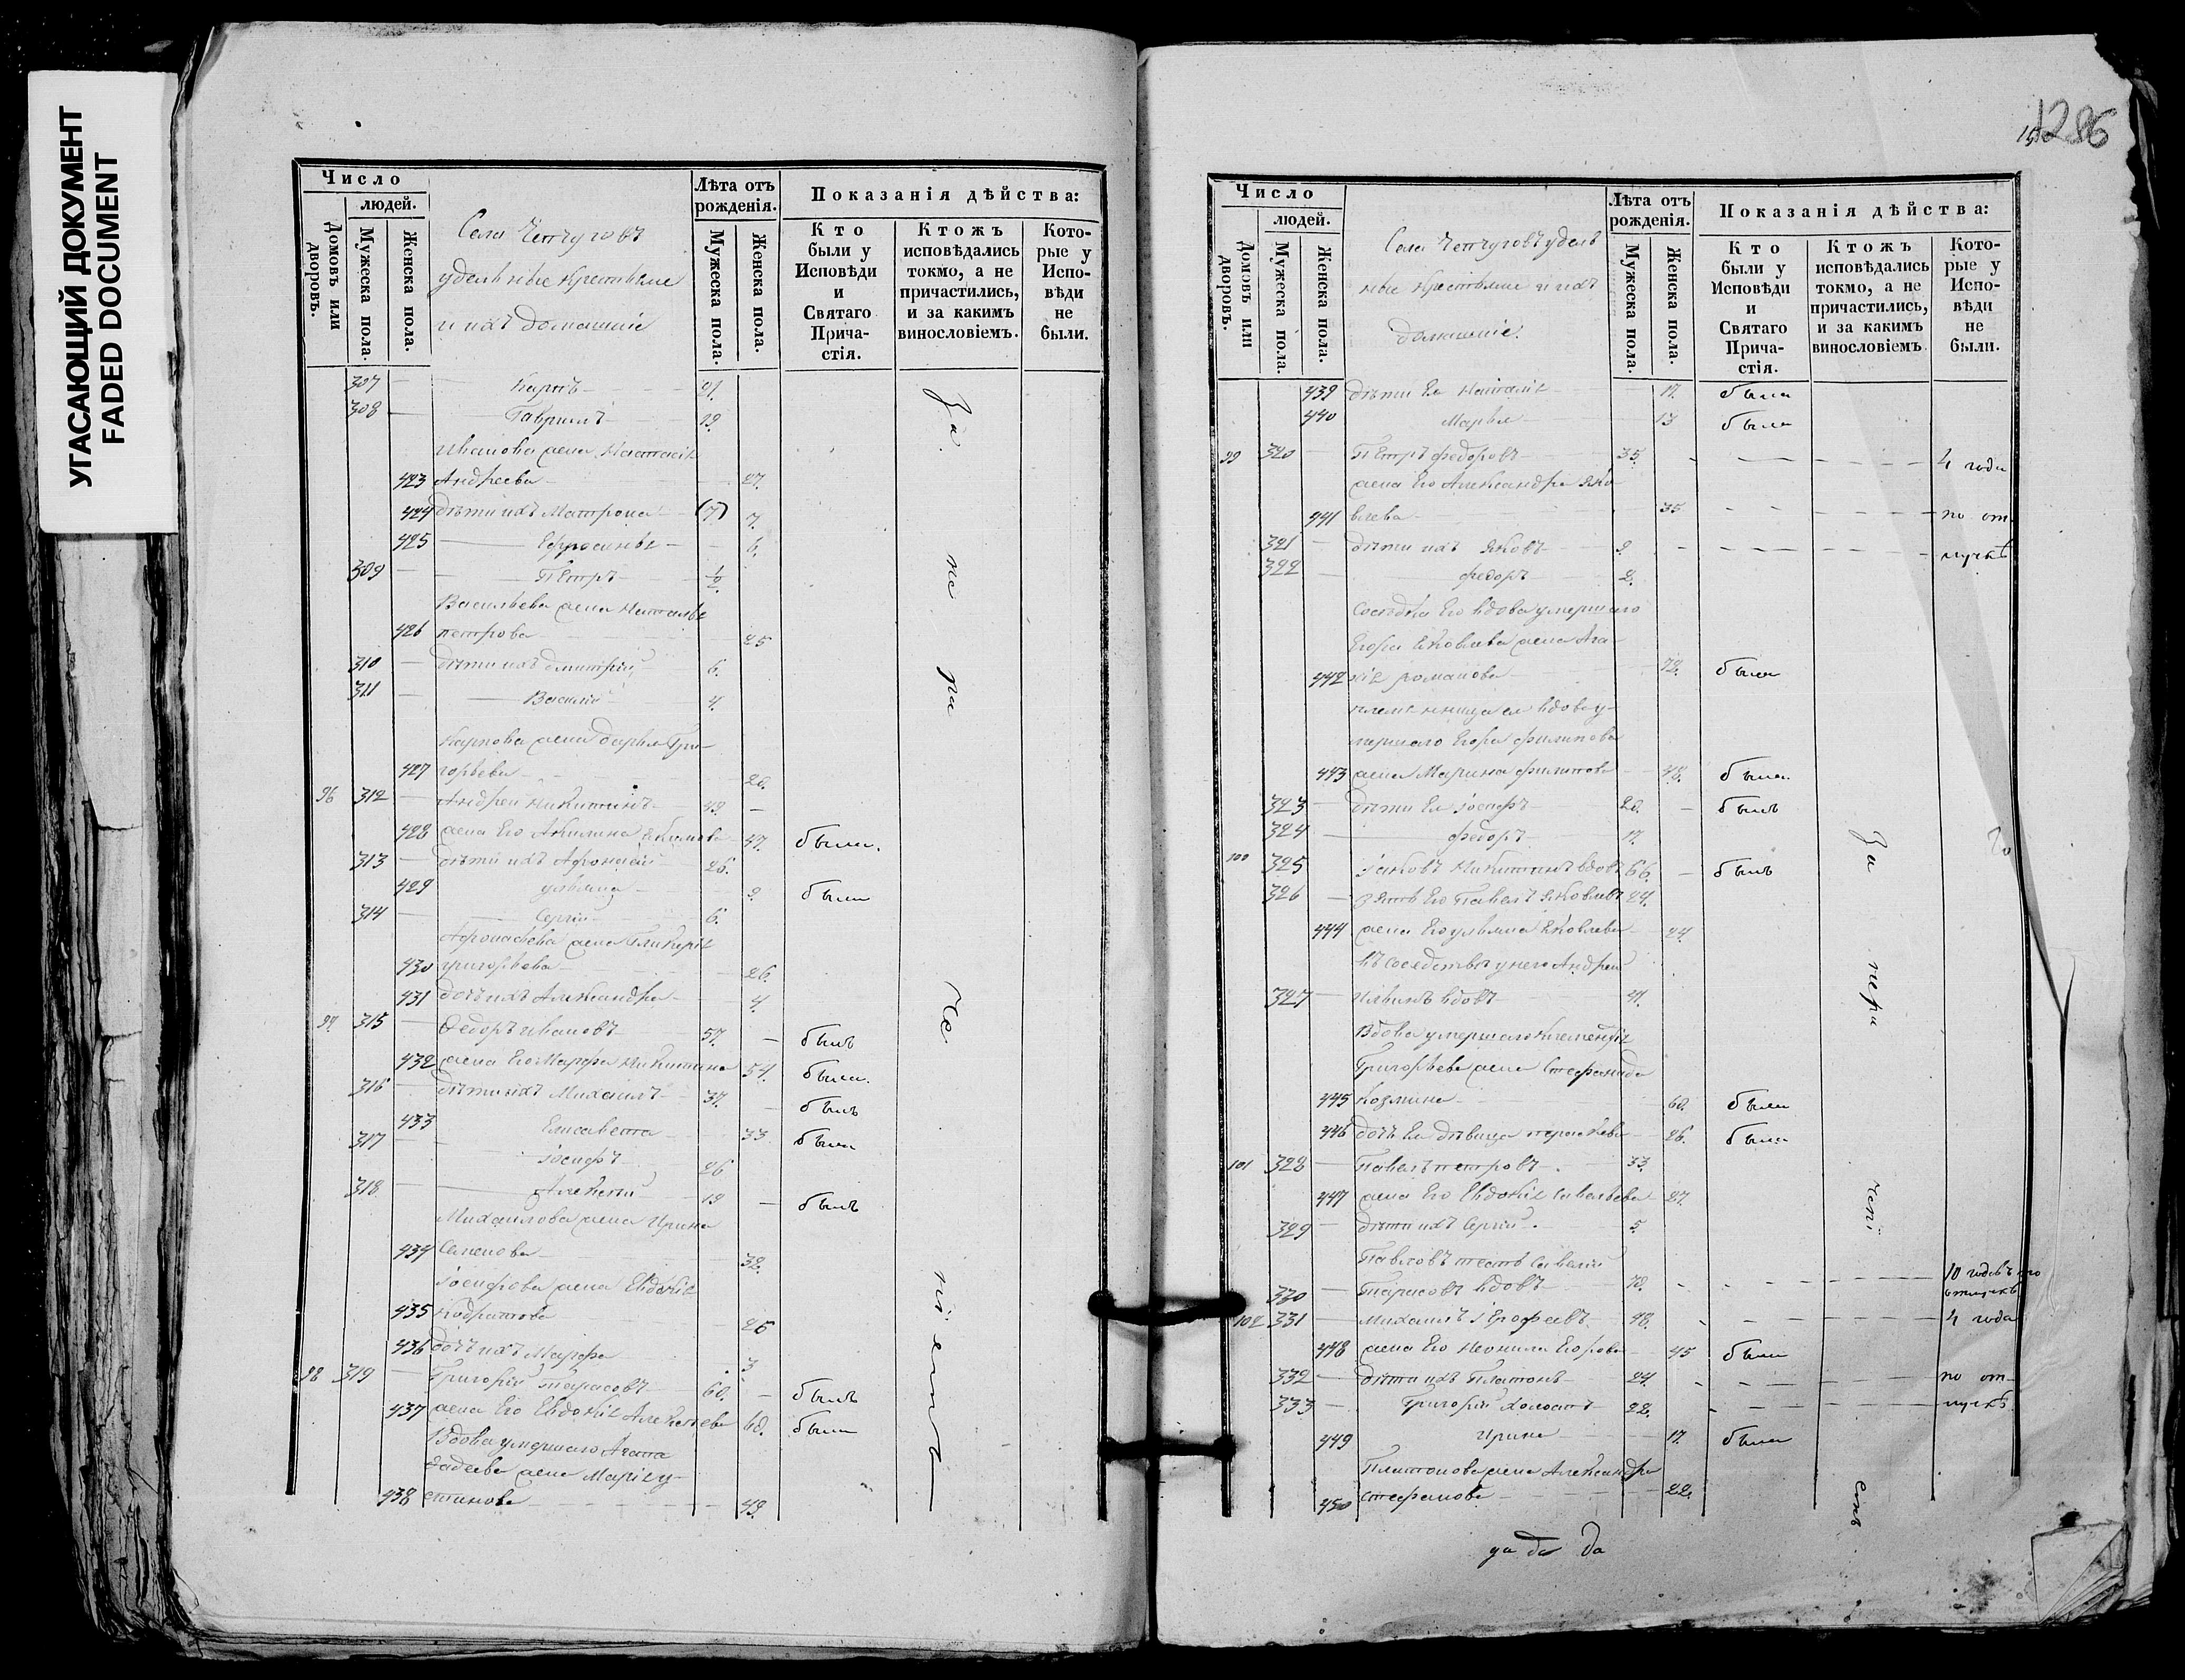 УГАСАЮЩИЙ ДОКУМЕНТ
FADED DOCUMENT
Число
людей.
Домовъ или дворовъ.
Мужеска пола.
Женска пола.
Села Чепчуговъ
удельные крестьяне
и ихъ домашніе
Лѣта отъ рожденія.
Мужеска пола.
Женска пола.
Показанія дѣйства:
Кто были у Исповѣди и Святаго Причастія.
Ктожъ исповѣдались токмо, а не причастились, и за какимъ винословіемъ.
Которые у Исповѣди не были.
307 — Карпъ — 21.
308 — Гавриилъ — 19.
Иванова жена Настасія
423 Андреева — 27.
424 дѣти ихъ Матрона — (7) 7.
425 — Ефросинья — 6.
309 — Петръ — ½
Васильева жена Наталья
426 петрова 25
310 — дѣти ихъ дмитрій 6.
311 — Василій 4.
Карпова жена дарья Гри-
427 горьева — 20.
96 312 — Андрей Никитинъ — 49. —
428 жена Его Акилина Якимова 47. была.
313 — дѣти ихъ Афонасій 26.
429 ульяна — 9. была
314 — Сергій 6.
Афонасьева жена Гликерія
430 григорьева — 26.
431 дочь ихъ Александра — 4.
97. 315 — Ѳедоръ Ивановъ — 57. — былъ
432 жена Его Марфа Никитина 54. была.
316 — дѣти ихъ Михаилъ — 37. — былъ
433 Елисавета — 33 была
317 — Іосифъ 26
318 — Алексѣй 19 — былъ
Михаилова жена Ирина
434 Семенова — 32.
Іосифова жена Евдокія
435 Кодратова 25
436 дочь ихъ Марфа 3
98 319 — Григорій тарасовъ — 60. — былъ
437 жена Его Евдокія Алексѣева 60. была
Вдова умершаго Агапа
Фадеева жена Марія у-
438 стинова — 49.
За
не
ра
че
ні
емъ
1286
Число
людей.
Домовъ или дворовъ.
Мужеска пола.
Женска пола.
Села Чепчуговъ удель
ные крестьяне и ихъ
домашніе.
Лѣта отъ рожденія.
Мужеска пола.
Женска пола.
Показанія дѣйства:
Кто были у Исповѣди и Святаго Причастія.
Ктожъ исповѣдались токмо, а не причастились, и за какимъ винословіемъ.
Которые у Исповѣди не были.
439 дѣти Ея Наталія 17. была
440 Марья — 13 была
99 320 — Петръ федоровъ — 35. — 4 года
жена Его Александра Яко
441 влева — 35. — по от-
321 — дѣти ихъ Яковъ — 9. — лучкѣ
322 — федоръ — 2.
Соседка Его вдова умершаго
Егора Яковлева жена Ага-
442 нія романова 72. была
племянница ея вдова у-
мершаго Егора филипова
443 жена Марина филипова — 48. была.
323 — дѣти Ея Іосифъ — 20. — былъ
324 — федоръ — 17.
100 325 Іаковъ Никитинъ вдовъ 66. — былъ
326 — зять Его Павелъ Яковлевъ 24.
444 жена Его ульяна Яковлева — 24.
въ соседствѣ у него Андрей
327 — Ильинъ вдовъ — 41.
Вдова умершаго Клементія
Григорьева жена Стефанида
445 Козмина — 60. была
446 дочь Ея дѣвица параскева — 26. была
101 328 — Павелъ петровъ — 33.
447 жена Его Евдокія Савельева 27.
329 — дѣти ихъ Сергій 5.
Павловъ тесть Савелій
330 — Тарасовъ вдовъ — 70. — 10 годовъ по отлучкѣ
102 331 — Михаилъ Іерофеевъ — 48. — 4 года
448 жена Его Неонила Егорова 45 была
332 — дѣти ихъ Платонъ — 24. — по от-
333 — Григорій холостъ — 22. — лучкѣ
449 Ирина — 17. была
Платонова жена Александра
450 стефанова — 22.
За
нера
чені
емъ